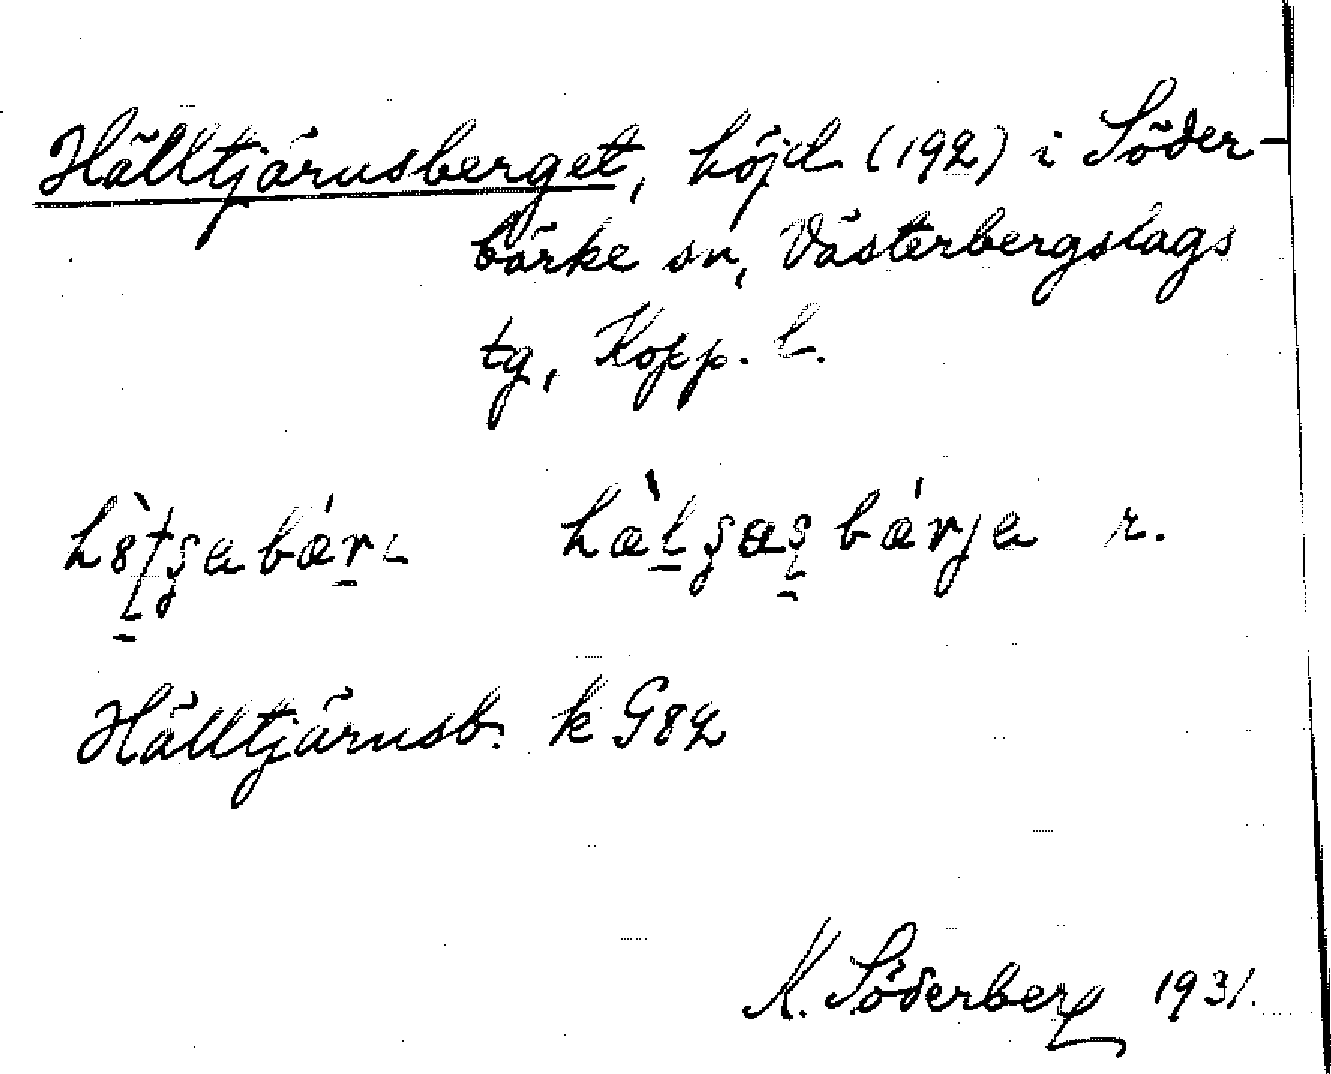 Hälltjärnsberget, höjd (192) i Söder-
bärke sn, Västerbergslags
tg, Kopp. l.
r.
Hälltjärnsb. k G82
K. Söderberg 1931.